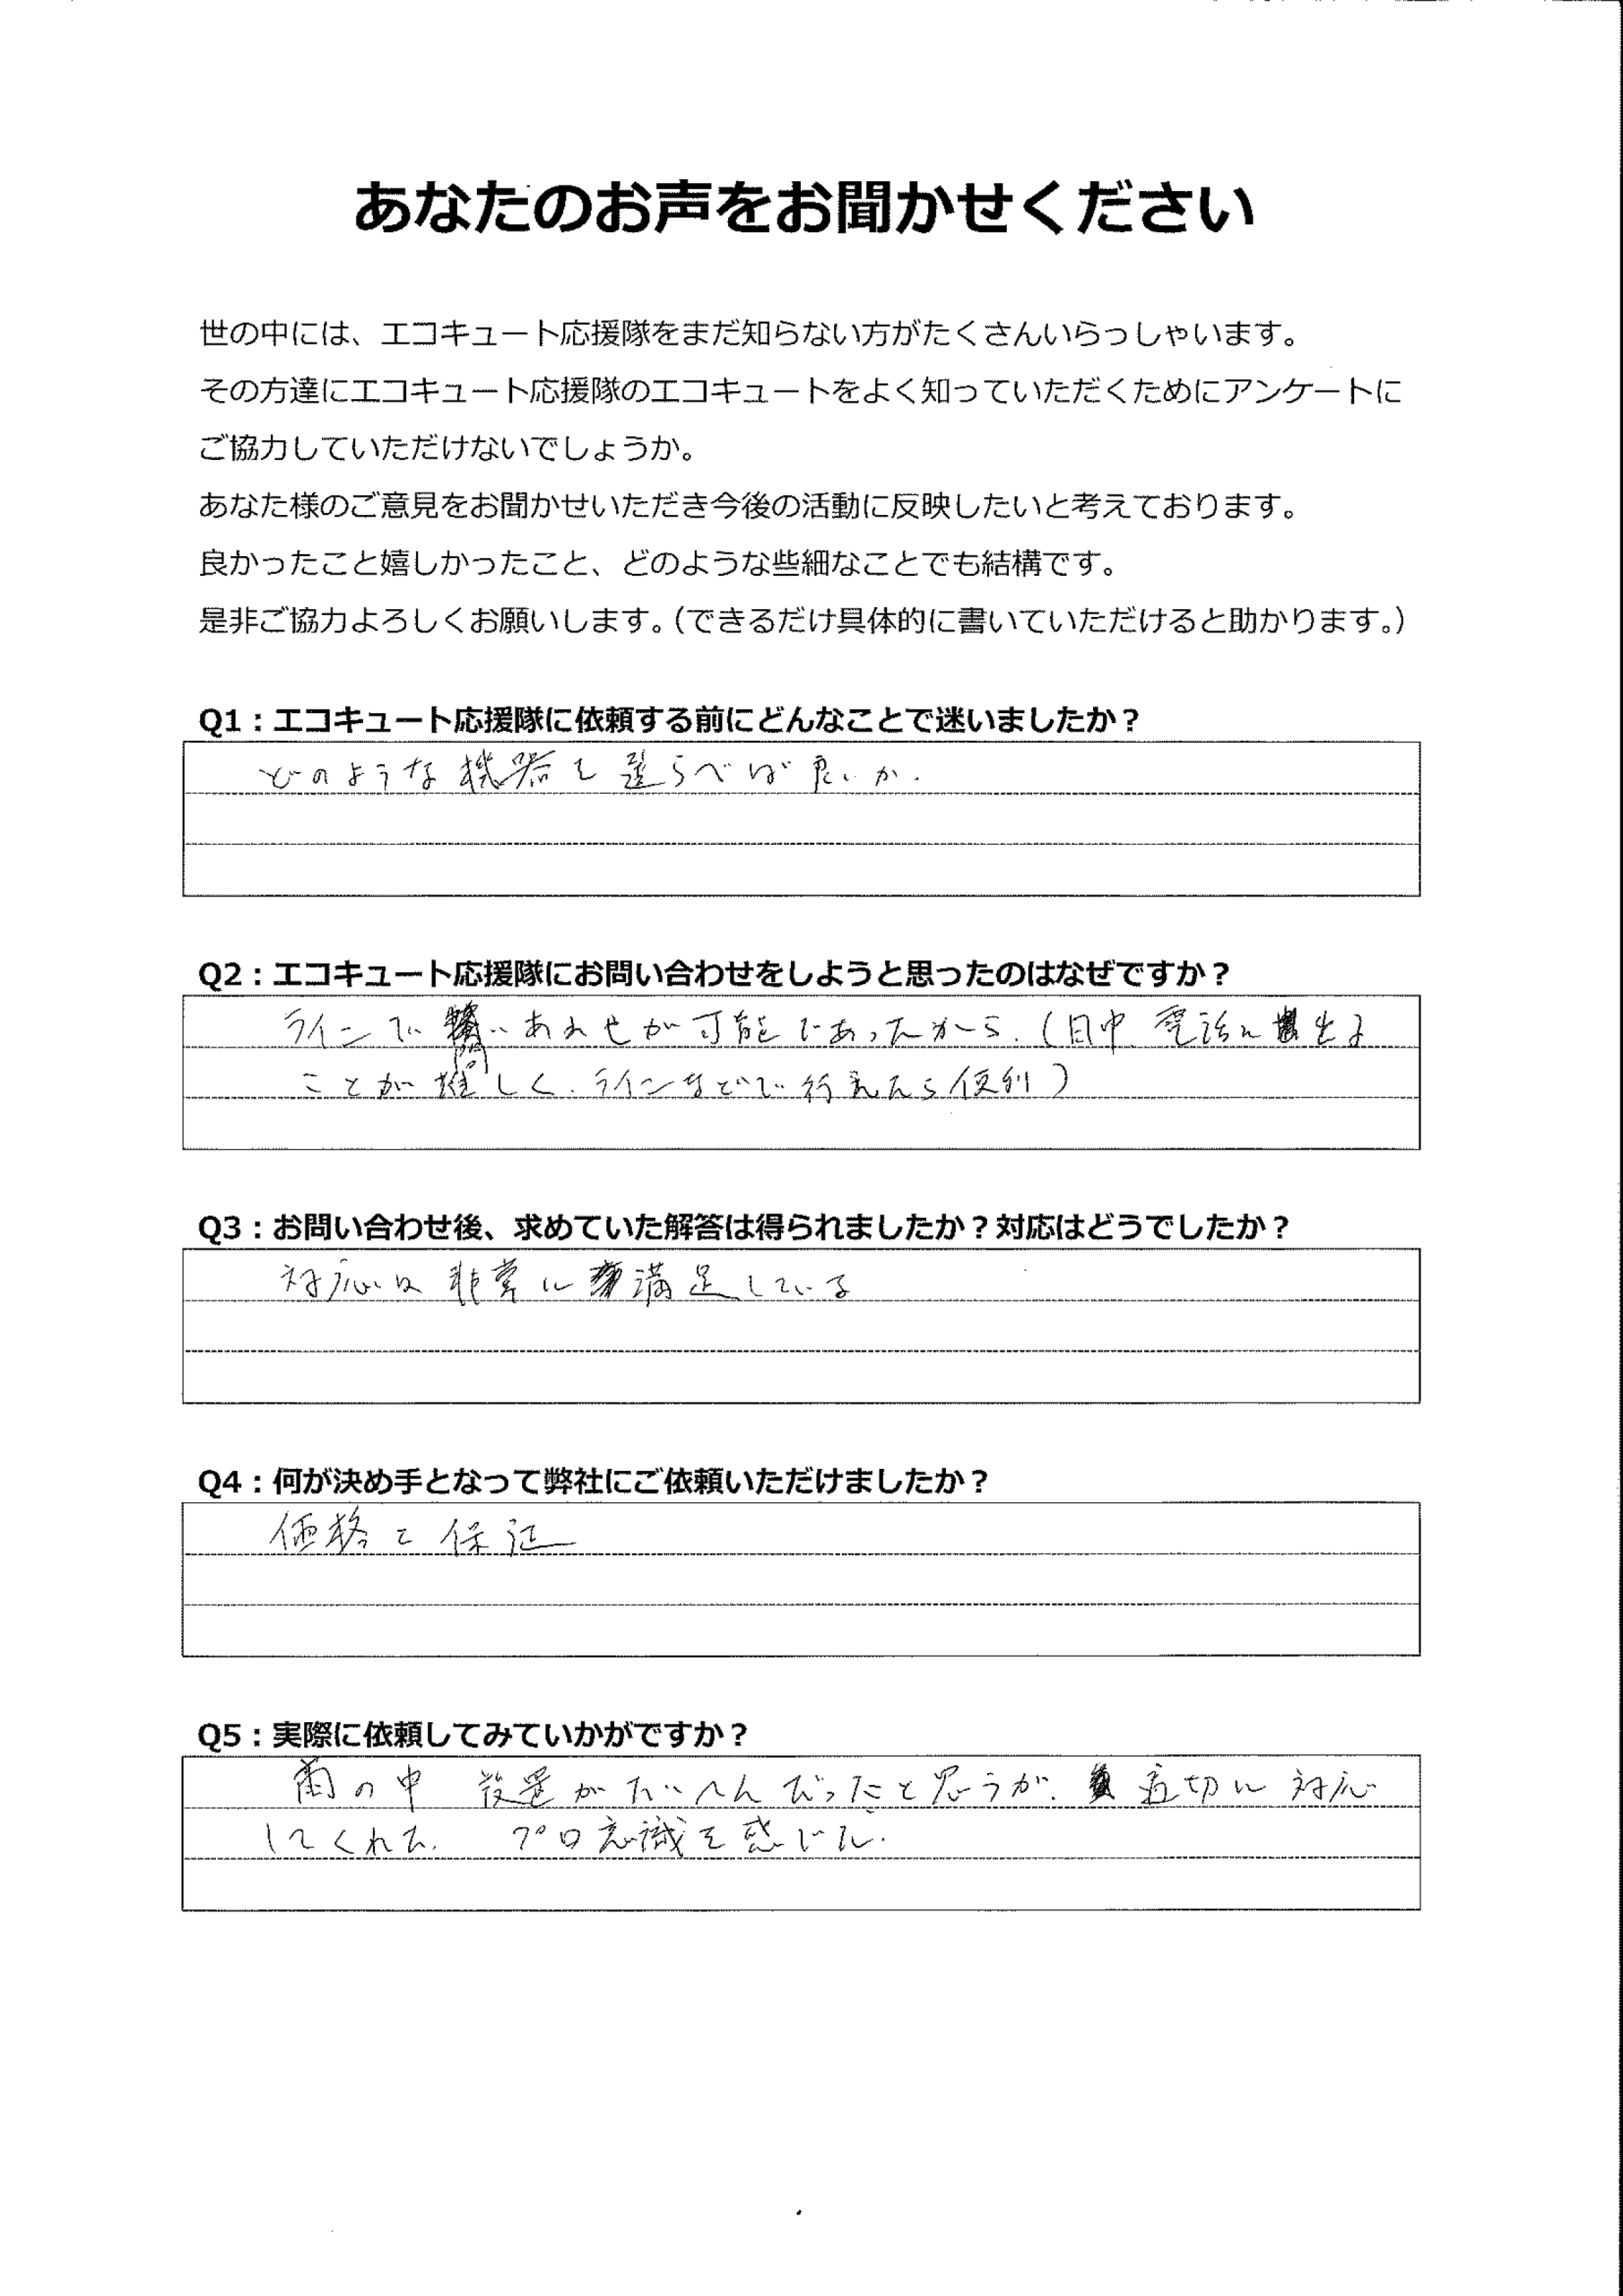 あなたのお声をお聞かせください
世の中には、エコキュート応援隊をまだ知らない方がたくさんいらっしゃいます。
その方達にエコキュート応援隊のエコキュートをよく知っていただくためにアンケートに
ご協力していただけないでしょうか。
あなた様のご意見をお聞かせいただき今後の活動に反映したいと考えております。
良かったこと嬉しかったこと、どのような些細なことでも結構です。
是非ご協力よろしくお願いします。（できるだけ具体的に書いていただけると助かります。）
Q1：エコキュート応援隊に依頼する前にどんなことで迷いましたか？
どのような機器を選らべば良いか.
Q2：エコキュート応援隊にお問い合わせをしようと思ったのはなぜですか？
ラインで問いあわせが可能であったから.（日中、電話に出る
ことが難しく、ラインなどで行えたら便利）
Q3：お問い合わせ後、求めていた解答は得られましたか？対応はどうでしたか？
対応は非常に満足している
Q4：何が決め手となって弊社にご依頼いただけましたか？
価格と保証
Q5：実際に依頼してみていかがですか？
雨の中 設置がたいへんだったと思うが、適切に対応
してくれた. プロ意識を感じた.